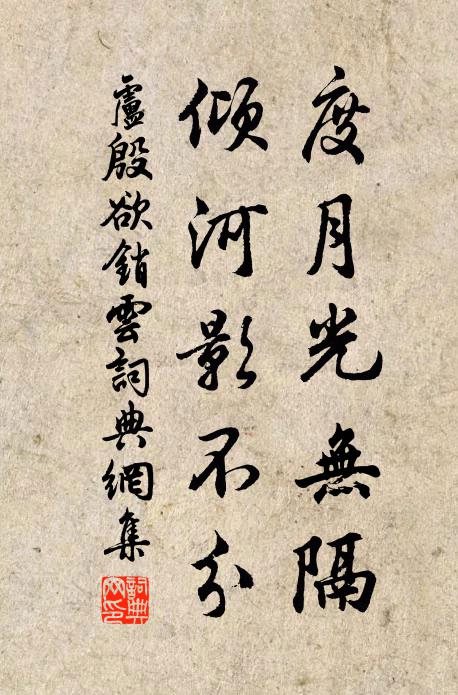 度月光無隔
傾河影不分
盧殷欲銷雲詞典網集
詞典網印